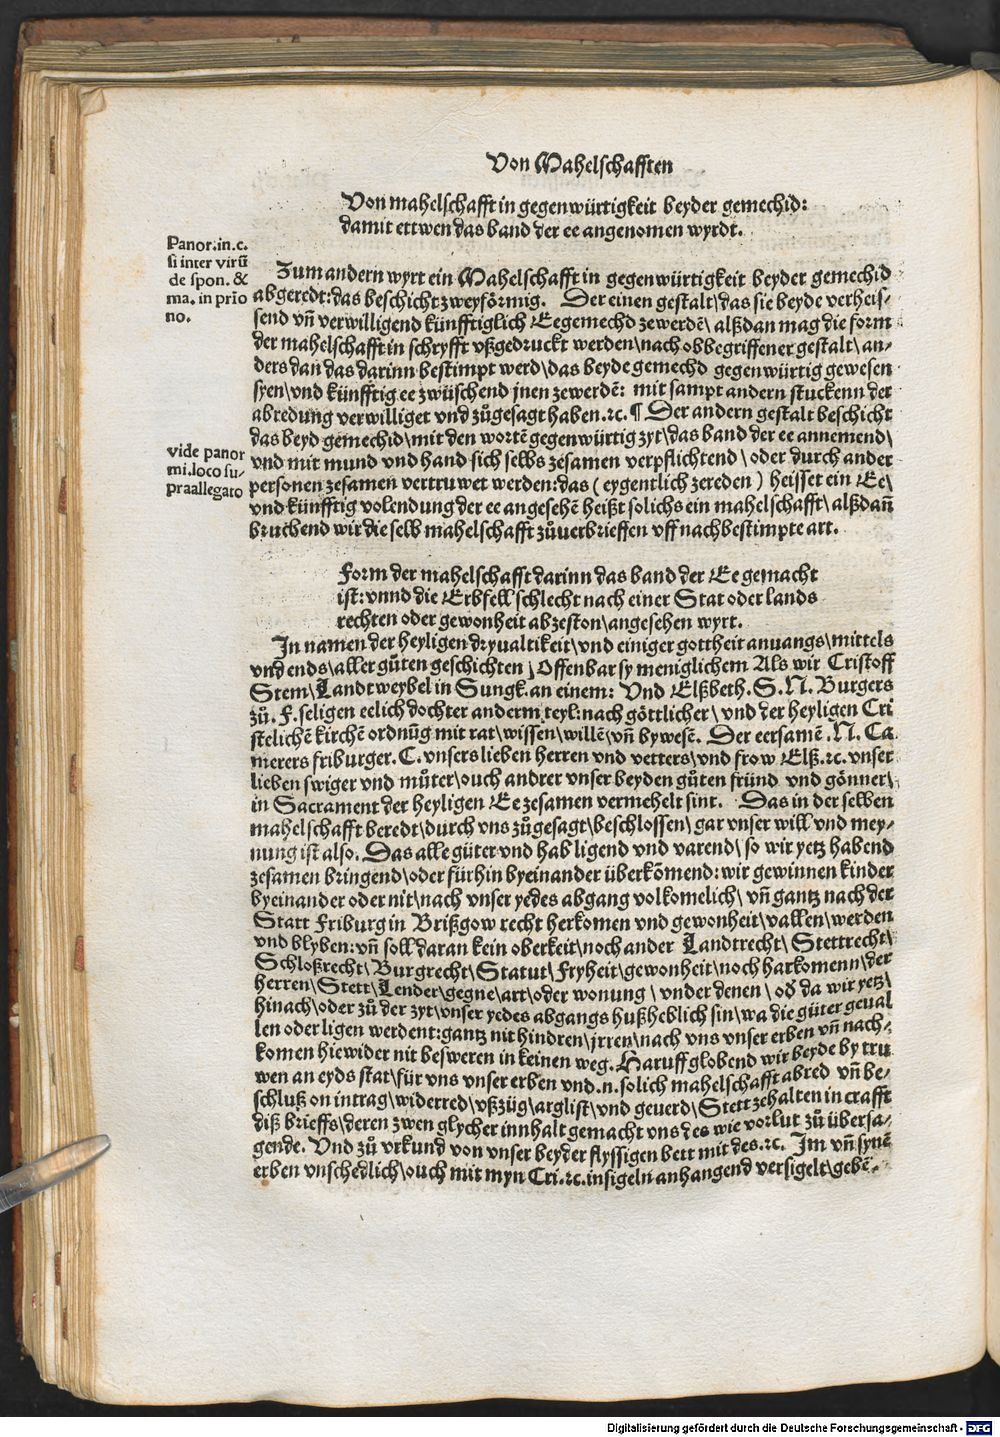 Von Mahelschafften
Von mahelschafft in gegenwürtigkeit beyder gemechid:
damit ettwen das band der ee angenomen wyrdt.
Panor. in. c.
si inter virū
de spon. &
ma. in prio
no.
Zum andern wyrt ein Mahelschafft in gegenwürtigkeit beyder gemechid
abgeredt: das beschicht zweyförmig. Der einen gestalt\ das sie beyde verheis⸗
send vñ verwilligend künfftiglich Eegemechd zewerdē\ alßdan mag die form
der mahelschafft in schryfft vßgedruckt werden\ nach obbegriffener gestalt\ an⸗
ders dan das darinn bestimpt werd\ das beyde gemechd gegenwürtig gewesen
syen\ vnd künfftig ee zwüschend jnen zewerdē: mit sampt andern stuckenn der
abredung verwilliget vnd zůgesagt haben. ⁊c. ¶ Der andern gestalt beschicht
das beyd gemechid\ mit den wortē gegenwürtig zyt\ das band der ee annemend\
vnd mit mund vnd hand sich selbs zesamen verpflichtend\ oder durch ander
personen zesamen vertruwet werden: das ( eygentlich zereden ) heisset ein Ee\
vnd künfftig volendung der ee angesehē heißt solichs ein mahelschafft\ alßdañ
bruchend wir die selb mahelschafft zůuerbrieffen vff nachbestimpte art.
vide panor
mi. loco su⸗
praallegato
Form der mahelschafft darinn das band der Ee gemacht
ist: vnnd die Erbfell schlecht nach einer Stat oder lands
rechten oder gewonheit abzeston\ angesehen wyrt.
In namen der heyligen dryualtikeit\ vnd einiger gottheit anuangs\ mittels
vnd ends\ aller gůten geschichten\ Offenbar sy meniglichem Als wir Cristoff
Stem\ Landtweybel in Sungk. an einem: Vnd Elßbeth. S. N. Burgers
zů. F. seligen eelich dochter anderm teyl: nach göttlicher\ vnd der heyligen Cri
stelichē kirchē ordnūg mit rat\ wissen\ willē\ vñ bywesē. Der eersamē. N. Ca
merers friburger. C. vnsers lieben herren vnd vetters\ vnd frow Elß. ⁊c. vnser
lieben swiger vnd můter\ ouch andrer vnser beyden gůten fründ vnd gönner\
in Sacrament der heyligen Ee zesamen vermehelt sint. Das in der selben
mahelschafft beredt\ durch vns zůgesagt\ beschlossen\ gar vnser will vnd mey⸗
nung ist also. Das alle güter vnd hab ligend vnd varend\ so wir yetz habend
zesamen bringend\ oder fürhin byeinander überkōmend: wir gewinnen kinder
byeinander oder nit\ nach vnser yedes abgang volkomelich\ vñ gantz nach der
Statt Friburg in Brißgow recht herkomen vnd gewonheit\ vallen\ werden
vnd blyben: vñ soll daran kein oberkeit\ noch ander Landtrecht\ Stettrecht\
Schloßrecht\ Burgrecht\ Statut\ Fryheit\ gewonheit\ noch harkomenn\ der
herren\ Stett\ Lender\ gegne\ art\ oder wonung\ vnder denen\ oď da wir yetz\
hinach\ oder zů der zyt\ vnser yedes abgangs hußheblich sin\ wa die güter geual
len oder ligen werdent: gantz nit hindren\ jrren\ nach vns vnser erben vñ nach⸗
komen hiewider nit besweren in keinen weg. Haruff globend wir beyde by tru
wen an eyds stat\ für vns vnser erben vnd. n. solich mahelschafft abred vñ be⸗
schluß on intrag\ widerred\ vßzüg\ arglist\ vnd geuerd\ Stett zehalten in crafft
diß brieffs\ deren zwen glycher innhalt gemacht vns des wie vorlut zů übersa⸗
gende. Vnd zů vrkund von vnser beyder flyssigen bett mit des. ⁊c. Im vñ synē
erben vnschedlich\ ouch mit myn Cri. ⁊c. insigeln anhangend versigelt\ gebē⸗
Digitalisierung gefördert durch die Deutsche Forschungsgemeinschaft - DFG